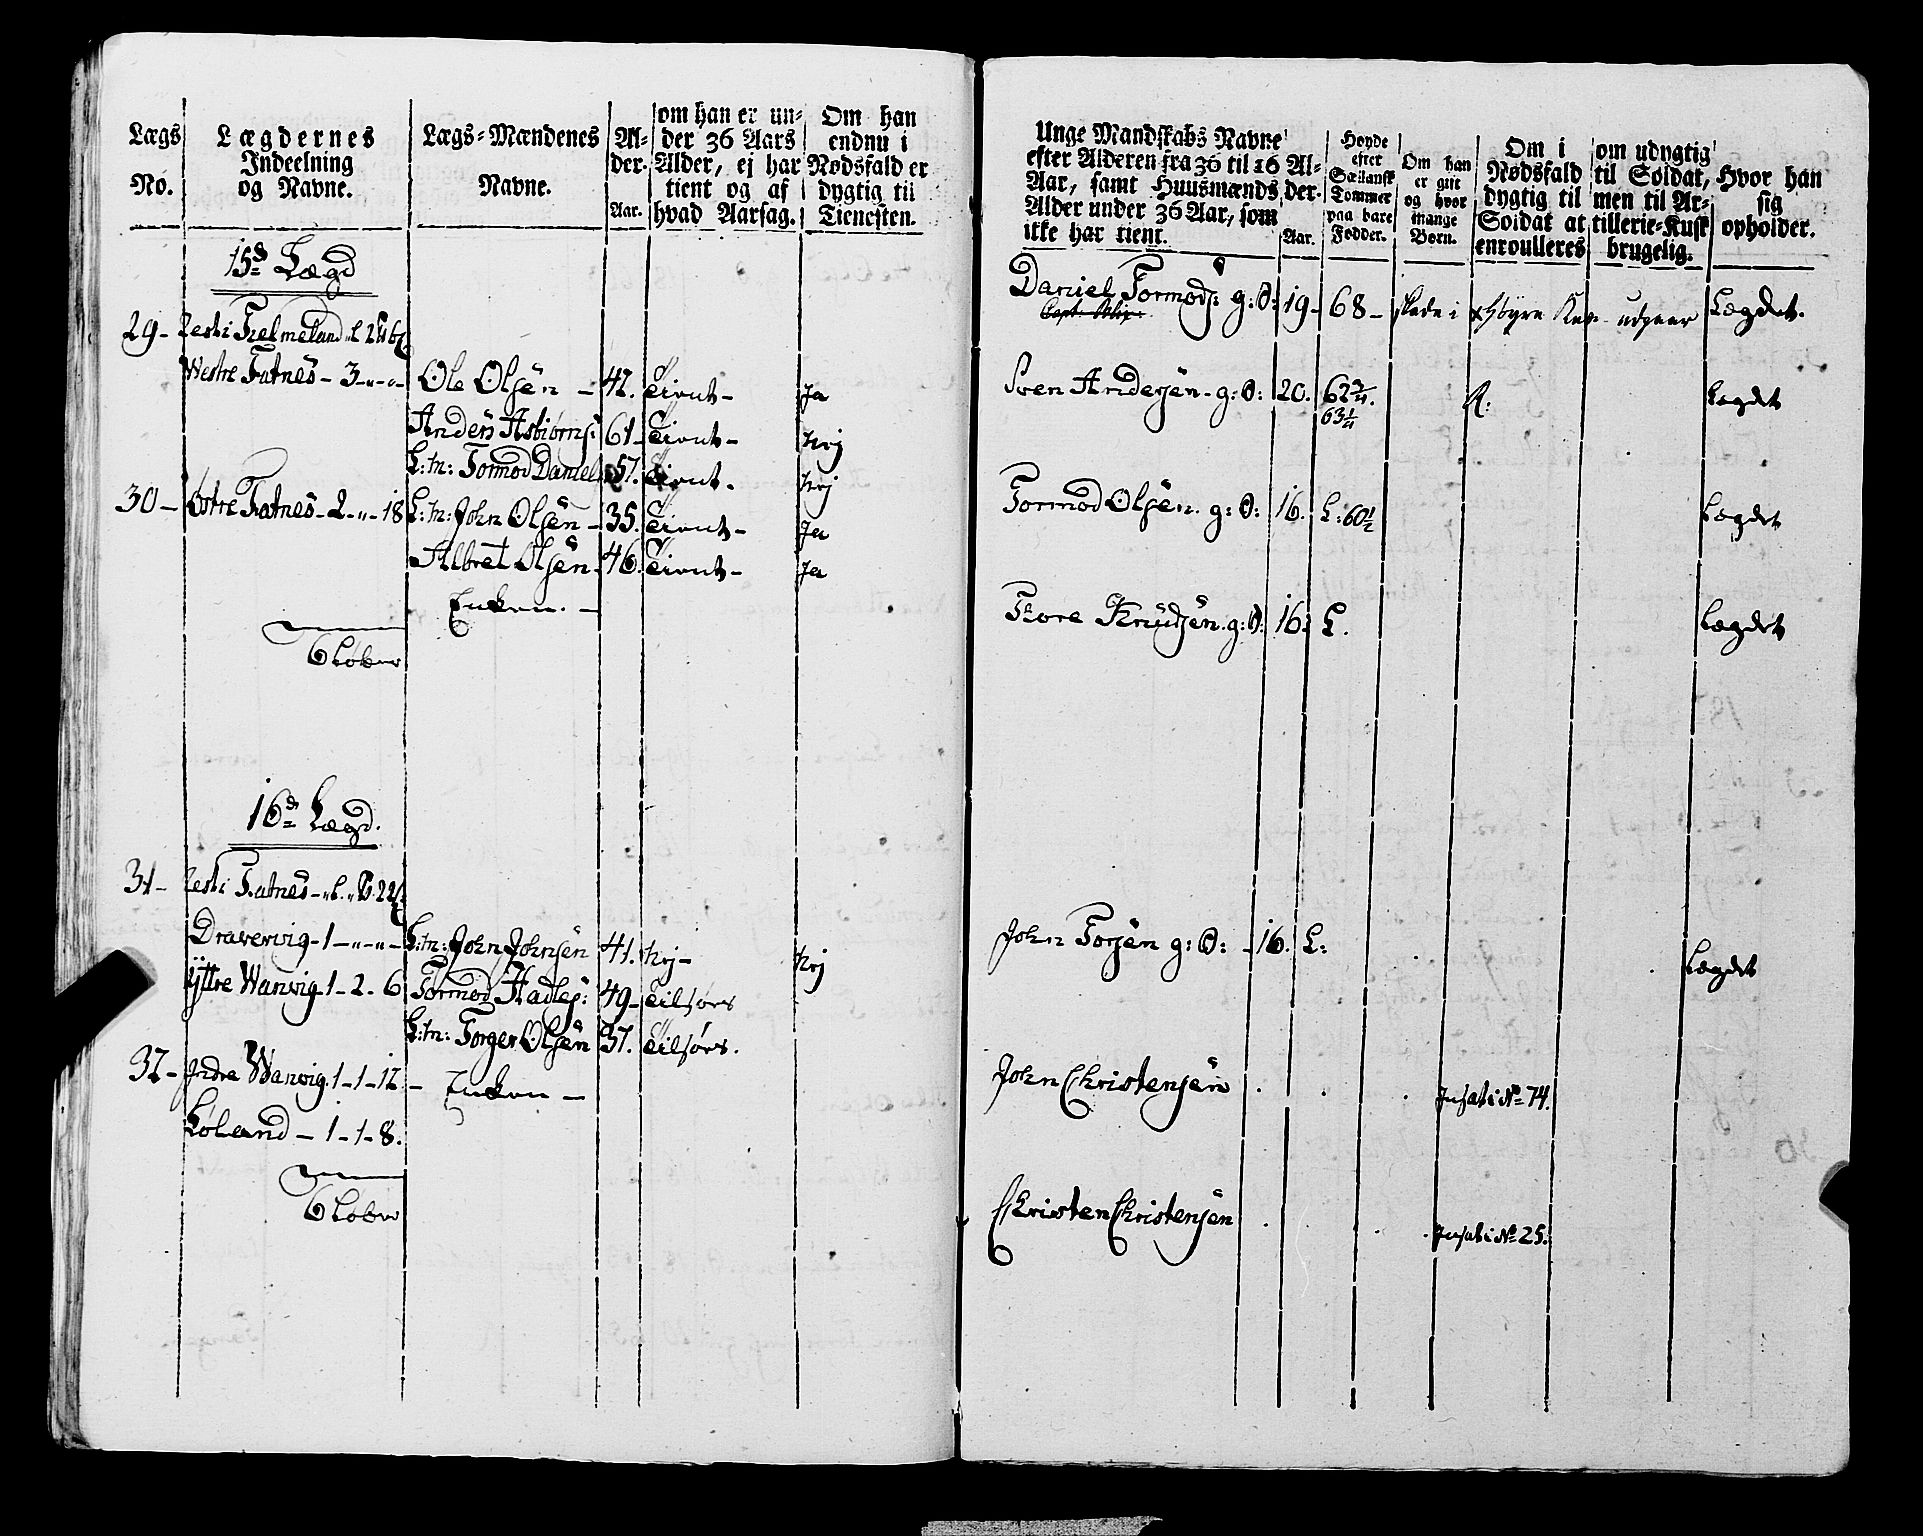 Lægs No.
Lægdernes Indeelning og Navne.
Lægs-Mændenes Navne.
Al-der. Aar.
om han er un-der 36 Aars Alder, ej har tient og af hvad Aarsag.
Om han endnu i Nødsfald er dygtig til Tienesten.
15de Lægd
29 - Resti Helmeland
Westre Fatnes - 3 - " - " - Ole Olsen - 42. Tient - Ja
Anders Asbiørns: 61 - Tient - Nej
L:m: Tormod Daniels 57. Tient. Nej
30 - Østre Fatnes - 2 - " - 18 L:m: John Olsen - 35. Tient - Ja
Albret Olsen - 46. Tient - Ja
Enken. -
6 Løber
16de Lægd.
31 - Resti Fatnes
Dravervig - 1 - " - " - L:m: John Johnsen 41. Nej - Nej
Yttre Wanvig - 1 - 2 - 6 Tormod Hadles: 49 - Tilførs
L:m: Torger Olsen 37. Tilførs.
32 - Indre Wanvig. 1 - 1 - 12. - Enken -
Løland - 1 - 1 - 8.
6 Løber
Unge Mandskabs Navne efter Alderen fra 36 til 16 Aar, samt Huusmænds Alder under 36 Aar, som ikke har tient.
Al-der. Aar.
Høyde efter Sællansk Tommer paa bare Fødder.
Om han er gift og hvor mange Børn.
Om i Nødsfald dygtig til Soldat at enroulleres
om udygtig til Soldat, men til Ar-tillerie-Kusk brugelig.
Hvor han sig opholder.
Daniel Tormods: g: S: 19 - 68 - udgaar Lægdet.
Sven Andersen - g: S: 20. 62 3/4. R: Lægdet
63 1/4
Tormod Olsen. g: S: 16. L: 60 1/2 Lægdet
Tore Knudsen. g: S: 16. L. Lægdet
John Torsen g: S: - 16. L: Lægdet
John Christensen . . . . Indsat i No 74.
Christen Christensen . . . Indsat i No 25.